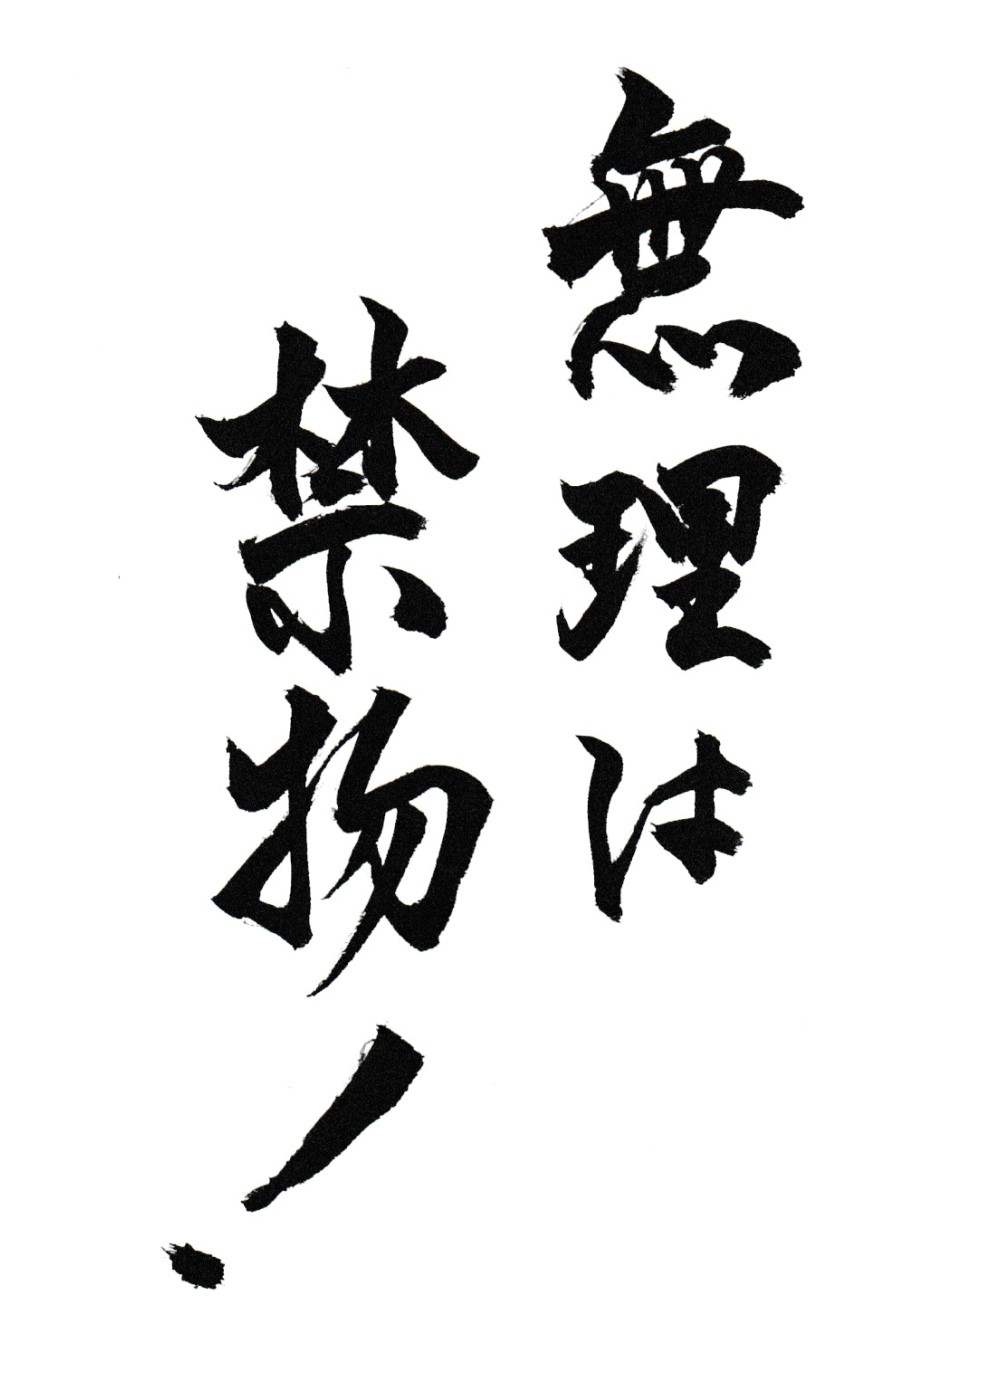 無理は
禁物！